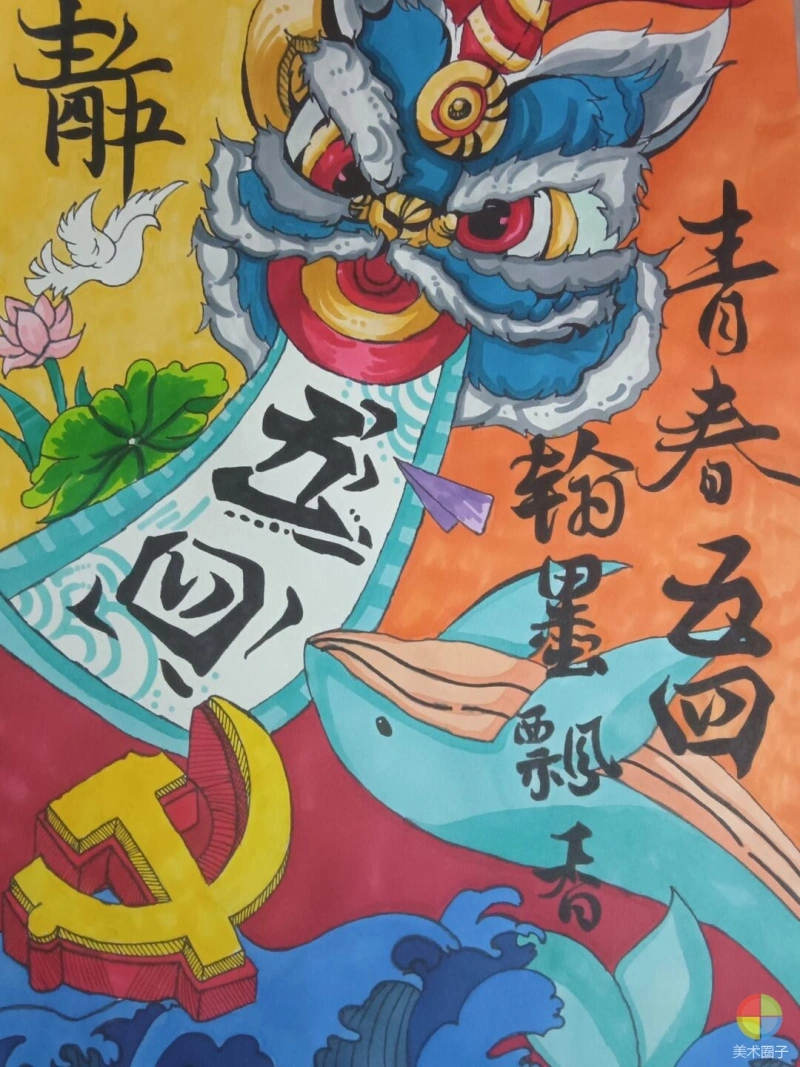 静
青春五四
翰墨飄香
五四
美术圈子